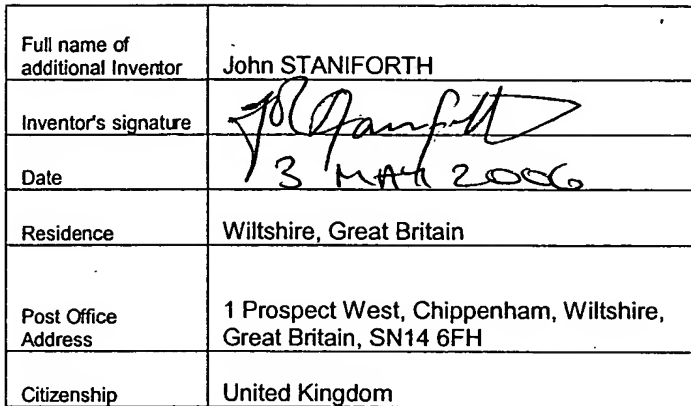 Full name of
additional Inventor John STANIFORTH
Inventor's signature
Date 3 MAY 2006
Residence Wiltshire, Great Britain
Post Office
Address
1 Prospect West, Chippenham, Wiltshire,
Great Britain, SN14 6FH
Citizenship United Kingdom